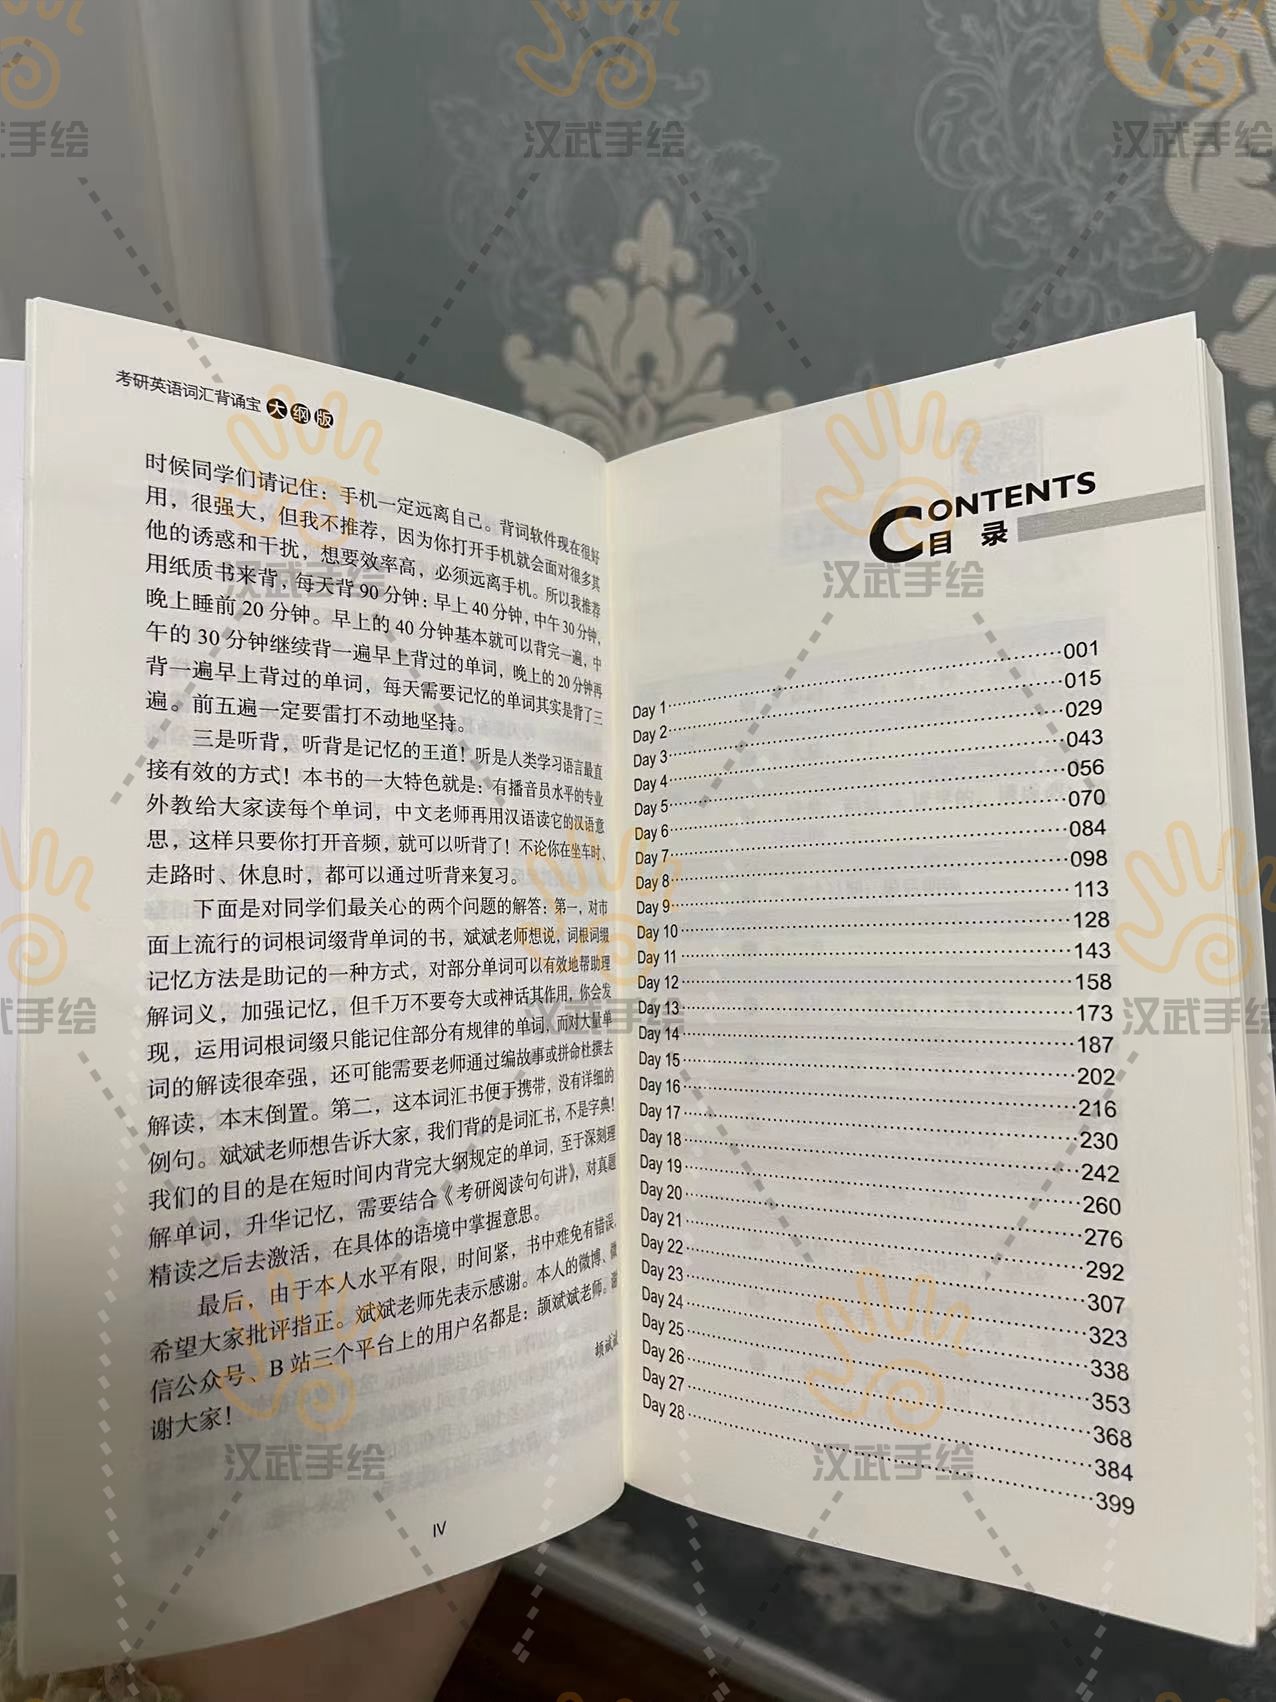 考研英语词汇背诵宝 大纲版
时候同学们请记住：手机一定远离自己。背词软件现在很好
用，很强大，但我不推荐，因为你打开手机就会面对很多其
他的诱惑和干扰，想要效率高，必须远离手机。所以我推荐
用纸质书来背，每天背90分钟：早上40分钟，中午30分钟，
晚上睡前20分钟。早上的40分钟基本就可以背完一遍，中
午的30分钟继续背一遍早上背过的单词，晚上的20分钟再
背一遍早上背过的单词，每天需要记忆的单词其实是背了三
遍。前五遍一定要雷打不动地坚持。
三是听背，听背是记忆的王道！听是人类学习语言最直
接有效的方式！本书的一大特色就是：有播音员水平的专业
外教给大家读每个单词，中文老师再用汉语读它的汉语意
思，这样只要你打开音频，就可以听背了！不论你在坐车时、
走路时、休息时，都可以通过听背来复习。
下面是对同学们最关心的两个问题的解答：第一，对市
面上流行的词根词缀背单词的书，斌斌老师想说，词根词缀
记忆方法是助记的一种方式，对部分单词可以有效地帮助理
解词义，加强记忆，但千万不要夸大或神话其作用，你会发
现，运用词根词缀只能记住部分有规律的单词，而对大量单
词的解读很牵强，还可能需要老师通过编故事或拼命杜撰去
解读，本末倒置。第二，这本词汇书便于携带，没有详细的
例句。斌斌老师想告诉大家，我们背的是词汇书，不是字典！
我们的目的是在短时间内背完大纲规定的单词，至于深刻理
解单词，升华记忆，需要结合《考研阅读句句讲》，对真题
精读之后去激活，在具体的语境中掌握意思。
最后，由于本人水平有限，时间紧，书中难免有错误，
希望大家批评指正。斌斌老师先表示感谢。本人的微博、微
信公众号、B站三个平台上的用户名都是：颉斌斌老师。谢
谢大家！
颉斌斌
IV
CONTENTS
目录
Day 1 001
Day 2 015
Day 3 029
Day 4 043
Day 5 056
Day 6 070
Day 7 084
Day 8 098
Day 9 113
Day 10 128
Day 11 143
Day 12 158
Day 13 173
Day 14 187
Day 15 202
Day 16 216
Day 17 230
Day 18 242
Day 19 260
Day 20 276
Day 21 292
Day 22 307
Day 23 323
Day 24 338
Day 25 353
Day 26 368
Day 27 384
Day 28 399
汉武手绘
汉武手绘
汉武手绘
汉武手绘
汉武手绘
汉武手绘
汉武手绘
汉武手绘
汉武手绘
汉武手绘